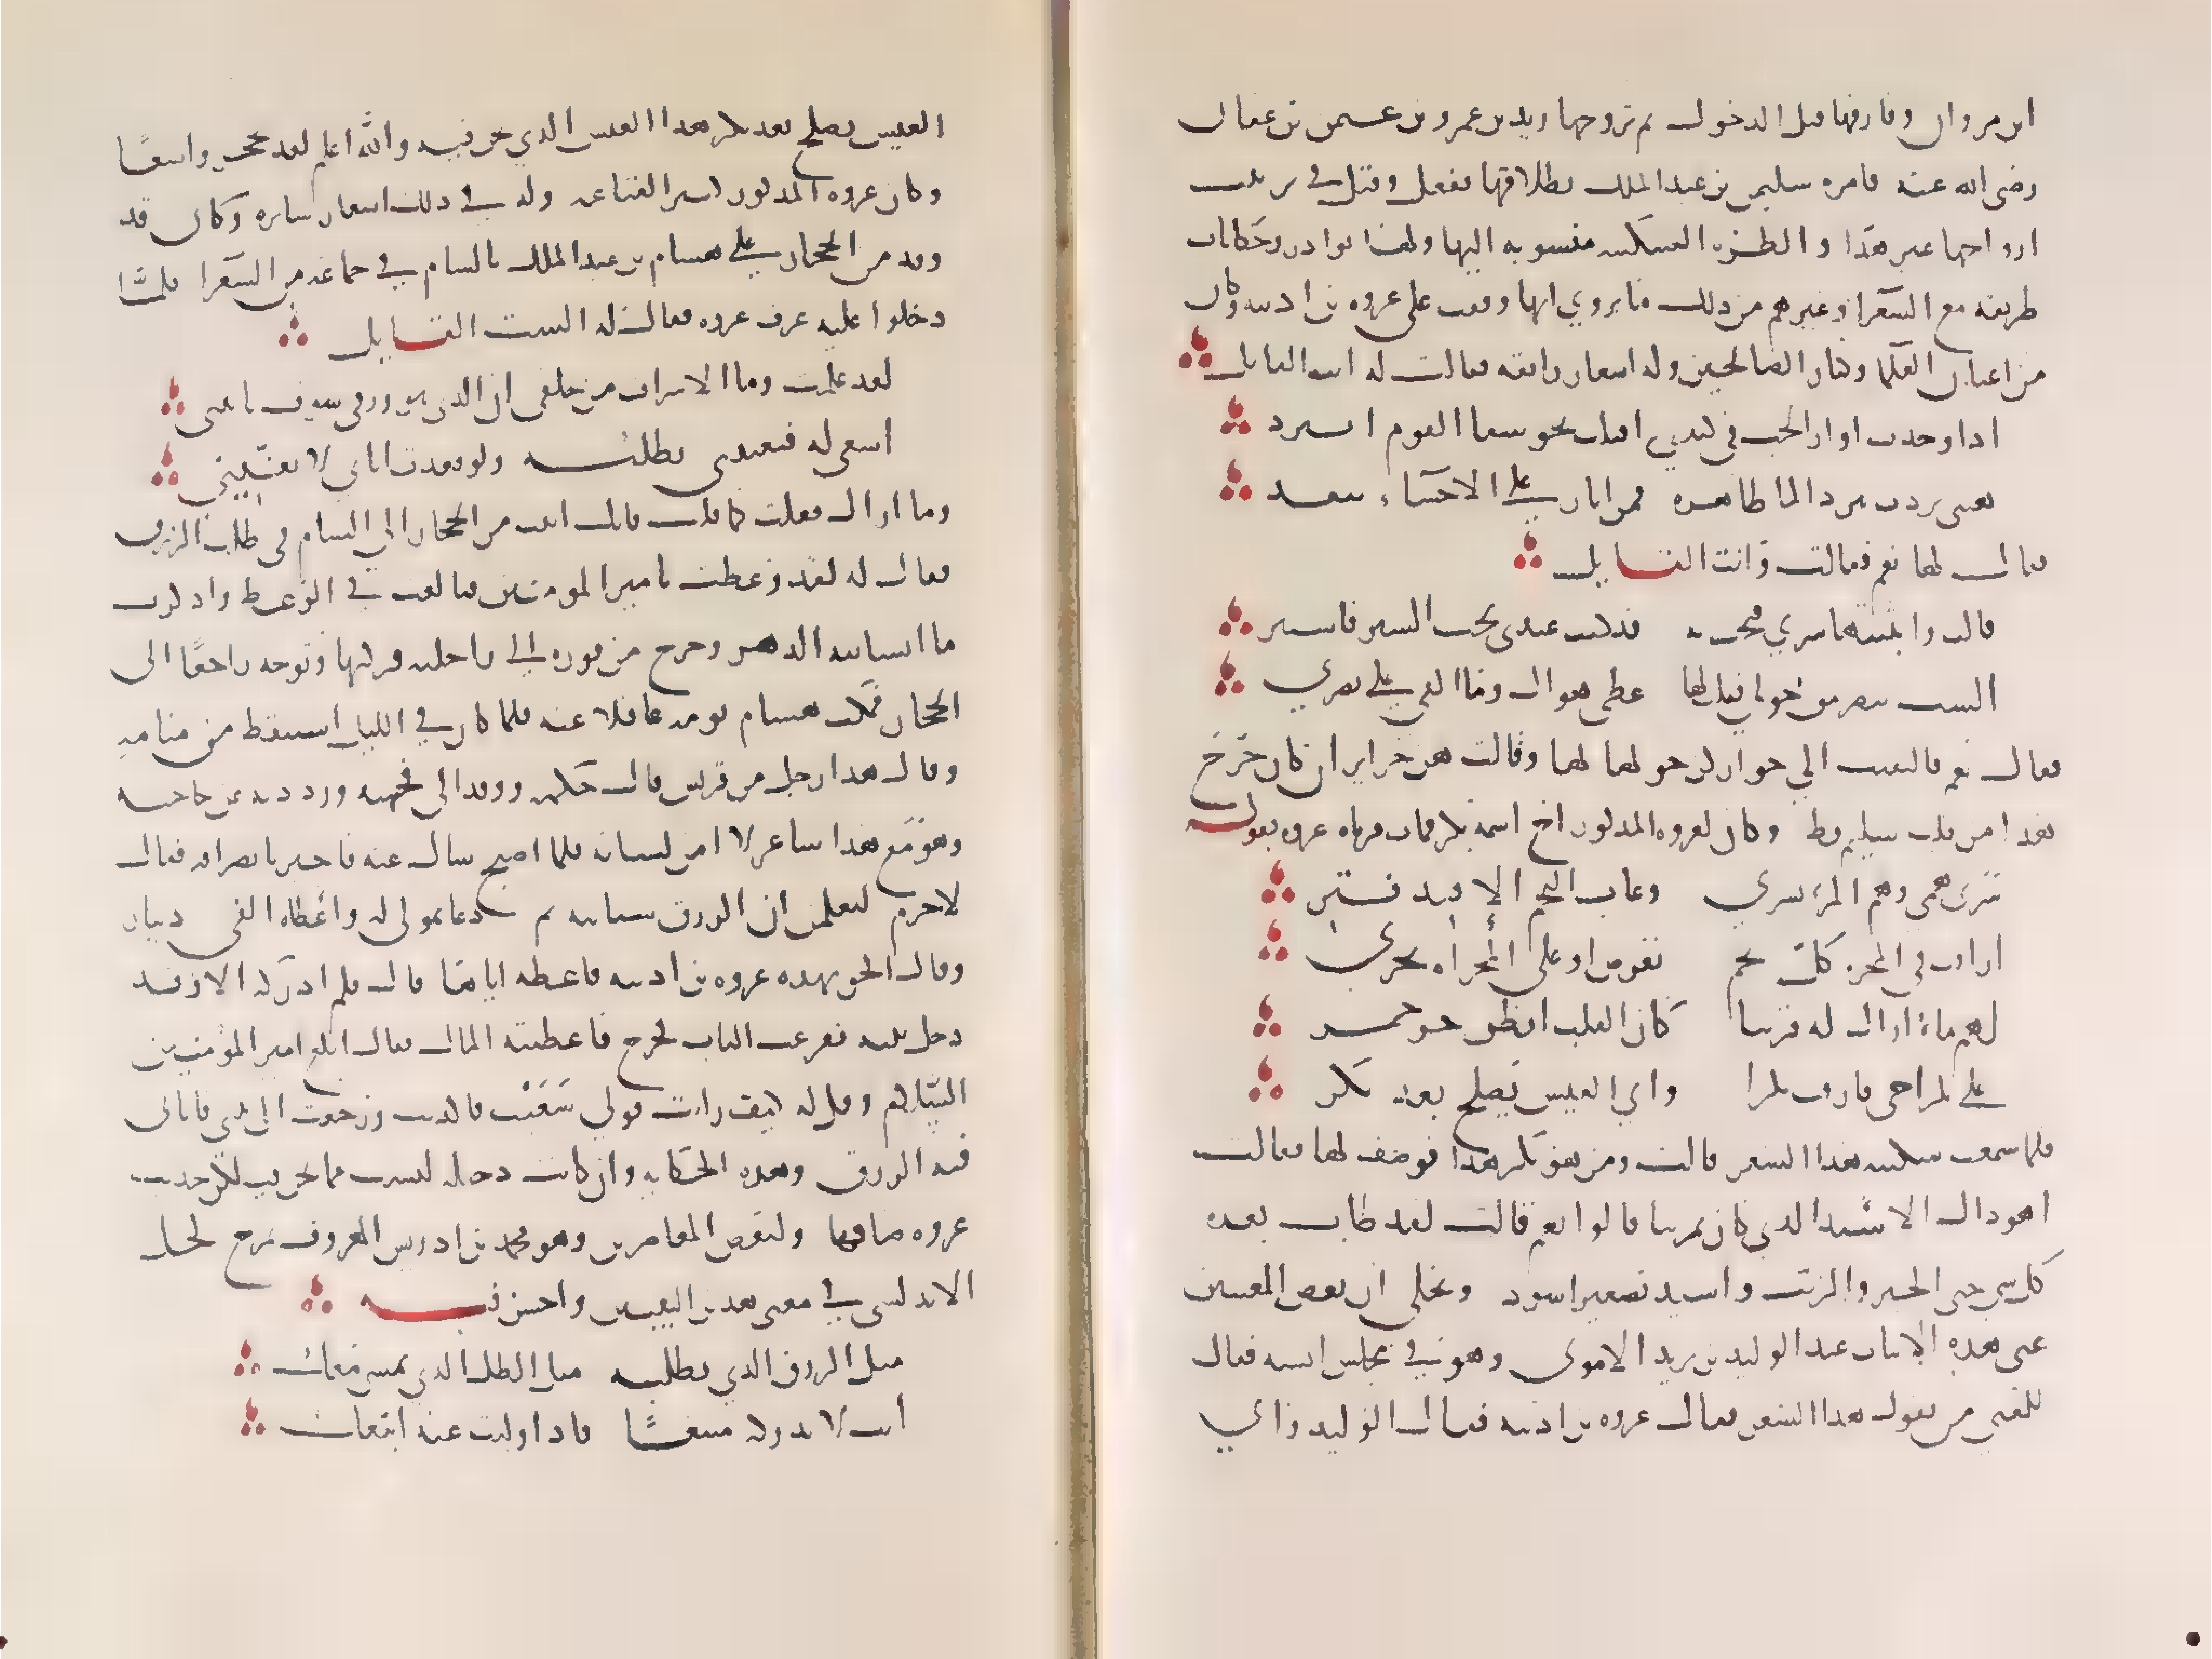 ابن مروان وفارقها قبل الدخول ثم تزوجها زيد بن عمرو بن عثمن بن عفان
رضى الله عنه فامره سليمن بن عبد الملك بطلاقها ففعل وقيل في ترتيب
ازواجها غير هذا والطرة السكينية منسوبه اليها ولها نوادر وحكايات
ظريفه مع الشعرا وغيرهم من ذلك ما يروي انها وقفت على عروه بن اذينه وكان
من اعيان العلما وكبار الصالحين وله اشعار رايقه فقالت له انت القايل
اذا وجدت اوار الحب في كبدي اقبلت نحو سقا القوم ابترد
هبني بردت ببرد الما ظاهره فمن لنار على الاحشاء تتقد
فقال لها نعم فقالت وانت القايل
قالت وابثثتها سري فبحت به قد كنت عندي تحب الستر فاستتر
الست تبصر من حولي فقلت لها غطى هواك وما القى على بصري
فقال نعم فالتفتت الي جوار كن حولها لها وقالت هن حراير ان كان خرج
هذا من قلب سليم قط وكان لعروه المذكور اخ اسمه بكر فمات فرثاه عروه بقوله
سرى همى وهم المرء يسري وغاب النجم الا قيد فتر
اراقب في المجره كل نجم تعرض او على المجراه يجري
لهم ما ازال له قرينا كان القلب ابطن حر جمر
على بكر اخى فارقت بكرا واي العيش يصلح بعد بكر
فلما سمعت سكينه هذا الشعر قالت ومن هو بكر هذا فوصف لها فقالت
اهو ذاك الاسيد الذي كان يمر بنا قالوا نعم قالت لقد طاب بعده
كل شي حتى الخبز والزيت واسيد تصغير اسود ويحكى ان بعض المغنين
غنى هذه الابيات عند الوليد بن يزيد الاموى وهو في مجلس انسه فقال
للمغنى من يقول هذا الشعر فقال عروه بن اذينه فقال الوليد واي
العيش يصلح بعد بكر هذا العيش الذي نحن فيه والله اعلم لقد تحجر واسعًا
وكان عروه المذكور كثير القناعه وله في ذلك اشعار سايره وكان قد
وفد من الحجاز على هشام بن عبد الملك بالشام في جماعه من الشعرا فلما
دخلوا عليه عرف عروه فقال له الست القايل
لقد علمت وما الاسراف من خلقى ان الذى هو رزقى سوف ياتيني
اسعى له فيعنيني تطلبه ولو قعدت اتاني لا يعنيني
وما اراك فعلت كما قلت فانك اتيت من الحجاز الي الشام في طلب الرزق
فقال له لقد وعظت يا مير المومنين فبالغت في الوعظ واذكرت
ما انسانيه الدهر وخرج من فوره الى راحلته فركبها وتوجه راجعًا الى
الحجاز فمكث هشام يومه غافلا عنه فلما كان في الليل استيقظ من منامه
وقال هذا رجل من قريش قال حكمه ووفد الى فجبهته ورددته عن حاجته
وهو مع هذا شاعر لا امن لسانه فلما اصبح سال عنه فاخبر بانصرافه فقال
لا جرم ليعلمن ان الرزق سياتيه ثم دعا بمولى له واعطاه الفي دينار
وقال الحق بهذه عروه بن اذينه فاعطه اياها قال فلم ادركه الا وقد
دخل بيته فقرعت الباب فخرج فاعطيته المال فقال ابلغ امير المؤمنين
السلام وقل له كيف رايت قولي سَعَيْت فاكديت ورجعت الى بيتي فاتانى
فيه الرزق وهذه الحكايه وان كانت دخيله ليست مما نحن فيه لكن حديث
عروه ساقها ولبعض المعاصرين وهو محمد بن ادريس المعروف بمرج كحل
الاندلسى في معنى هذين البيتين واحسن فيه
مثل الرزق الذي تطلبه مثل الظل الذي يمشي معك
انت لا تدركه متبعًا فاذا وليت عنه اتبعك